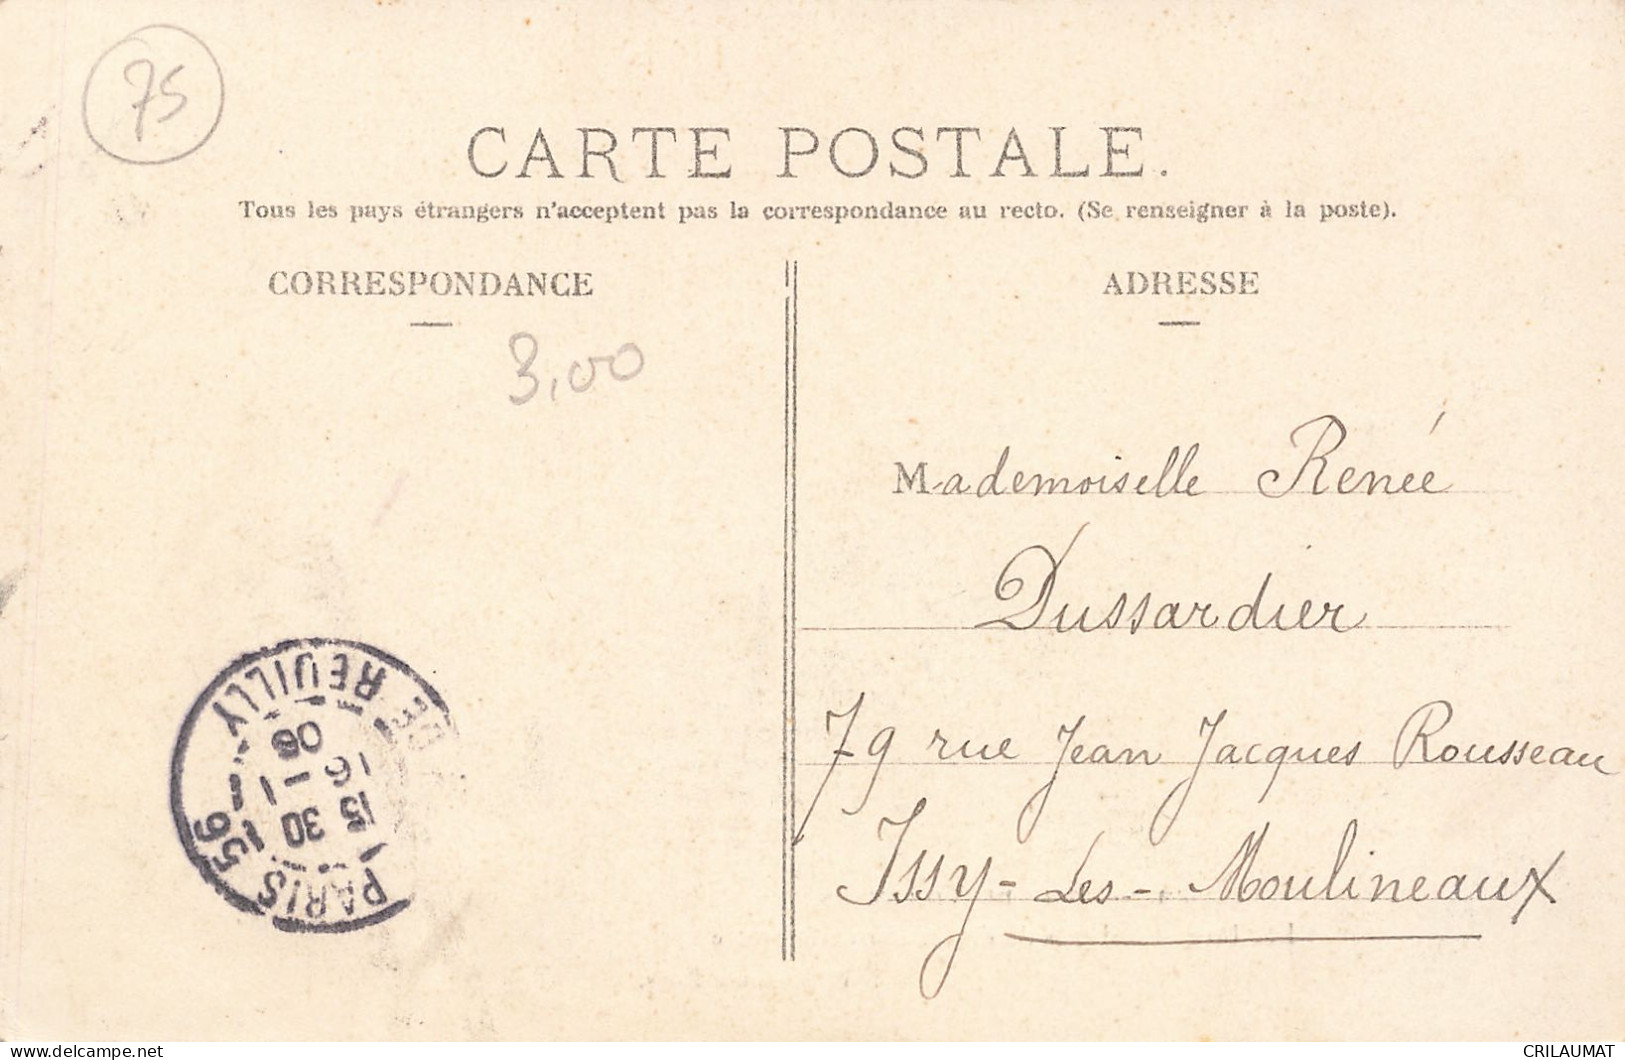 75
CARTE POSTALE.
Tous les pays étrangers n'acceptent pas la correspondance au recto. (Se renseigner à la poste).
CORRESPONDANCE
ADRESSE
3,00
Mademoiselle Renée
Dussardier
79 rue Jean Jacques Rousseau
Issy-Les-Moulineaux
PARIS 56
15 30
16 - 1
08
REUILLY
CRILAUMAT